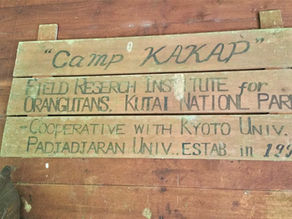 "Camp KAKAP"
FIELD RESERCH INSTITUTE for
ORANGUTANS. KUTAI NATIONL PARK
COOPERATIVE WITH KYOTO UNIV.
PADJADJARAN UNIV., ESTAB. in